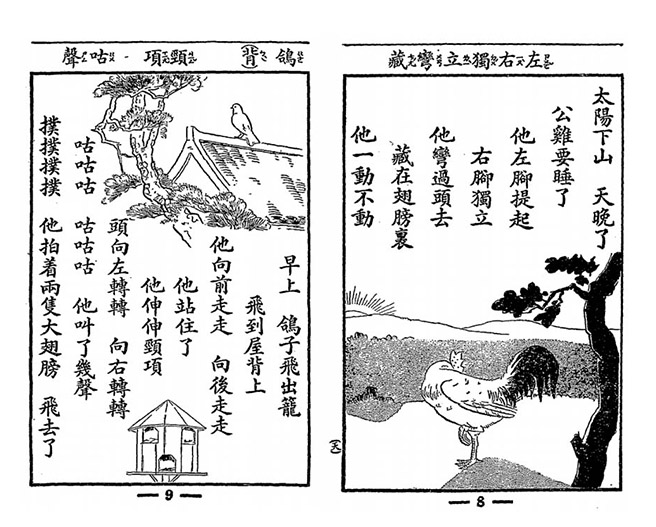 左右獨立彎藏
太陽下山 天晚了
公雞要睡了
他左腳提起
右腳獨立
他彎過頭去
藏在翅膀裏
他一動不動
8
鴿(背)頸項咕聲
早上 鴿子飛出籠
飛到屋背上
他向前走走 向後走走
他站住了
他伸伸頸項
頭向左轉轉 向右轉轉
咕咕咕 咕咕咕 他叫了幾聲
撲撲撲撲 他拍着兩隻大翅膀 飛去了
9